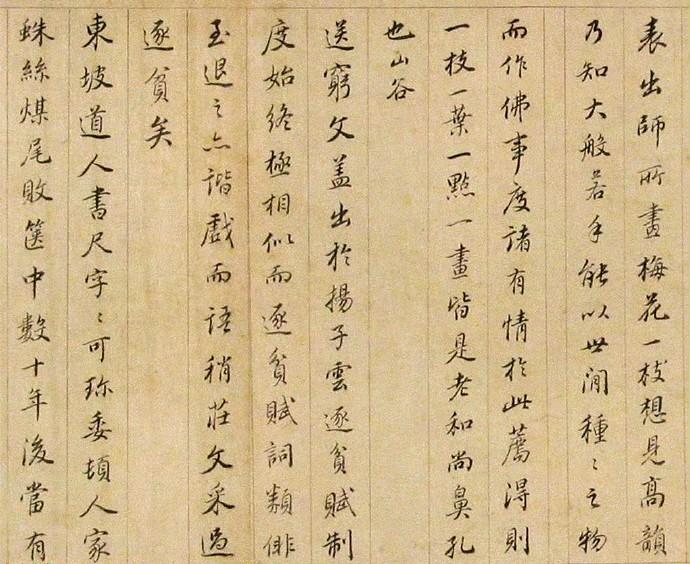 表出師所畫梅花一枝想見高韻
乃知大般若手能以世間種〻之物
而作佛事度諸有情於此薦得則
一枝一葉一點一畫皆是老和尚鼻孔
也山谷
送窮文蓋出於揚子雲逐貧賦制
度始終極相似而逐貧賦詞類俳
至退之亦諧戲而語稍莊文采過
逐貧矣
東坡道人書尺字〻可珎委頓人家
蛛絲煤尾敗篋中數十年後當有